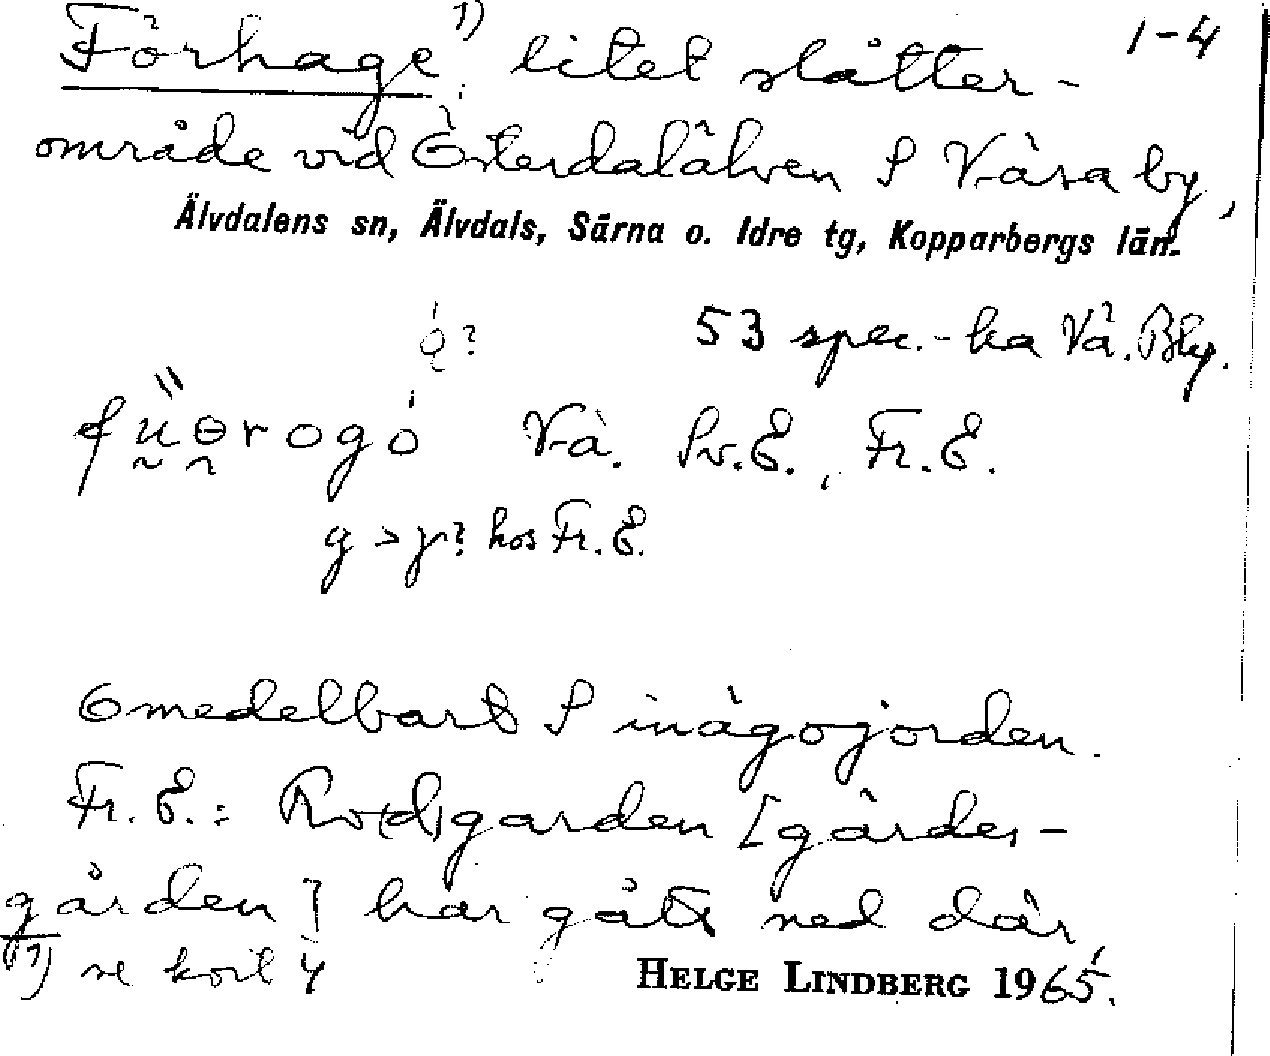 Förhage 1) litet slåtter- 1-4
område vid Österdalälven S Våsa by,
Älvdalens sn, Älvdals, Särna o. Idre tg, Kopparbergs län.
ó? 53 spec.-ka Vå. Bly.
Vå. Sv.E., Fr.E.
g > γ? hos Fr.E.
Omedelbart S inägojorden.
Fr.E.: Ro(d)garden [gärdes-
gården] har gått ned där,
1) se kort 4 HELGE LINDBERG 1965.